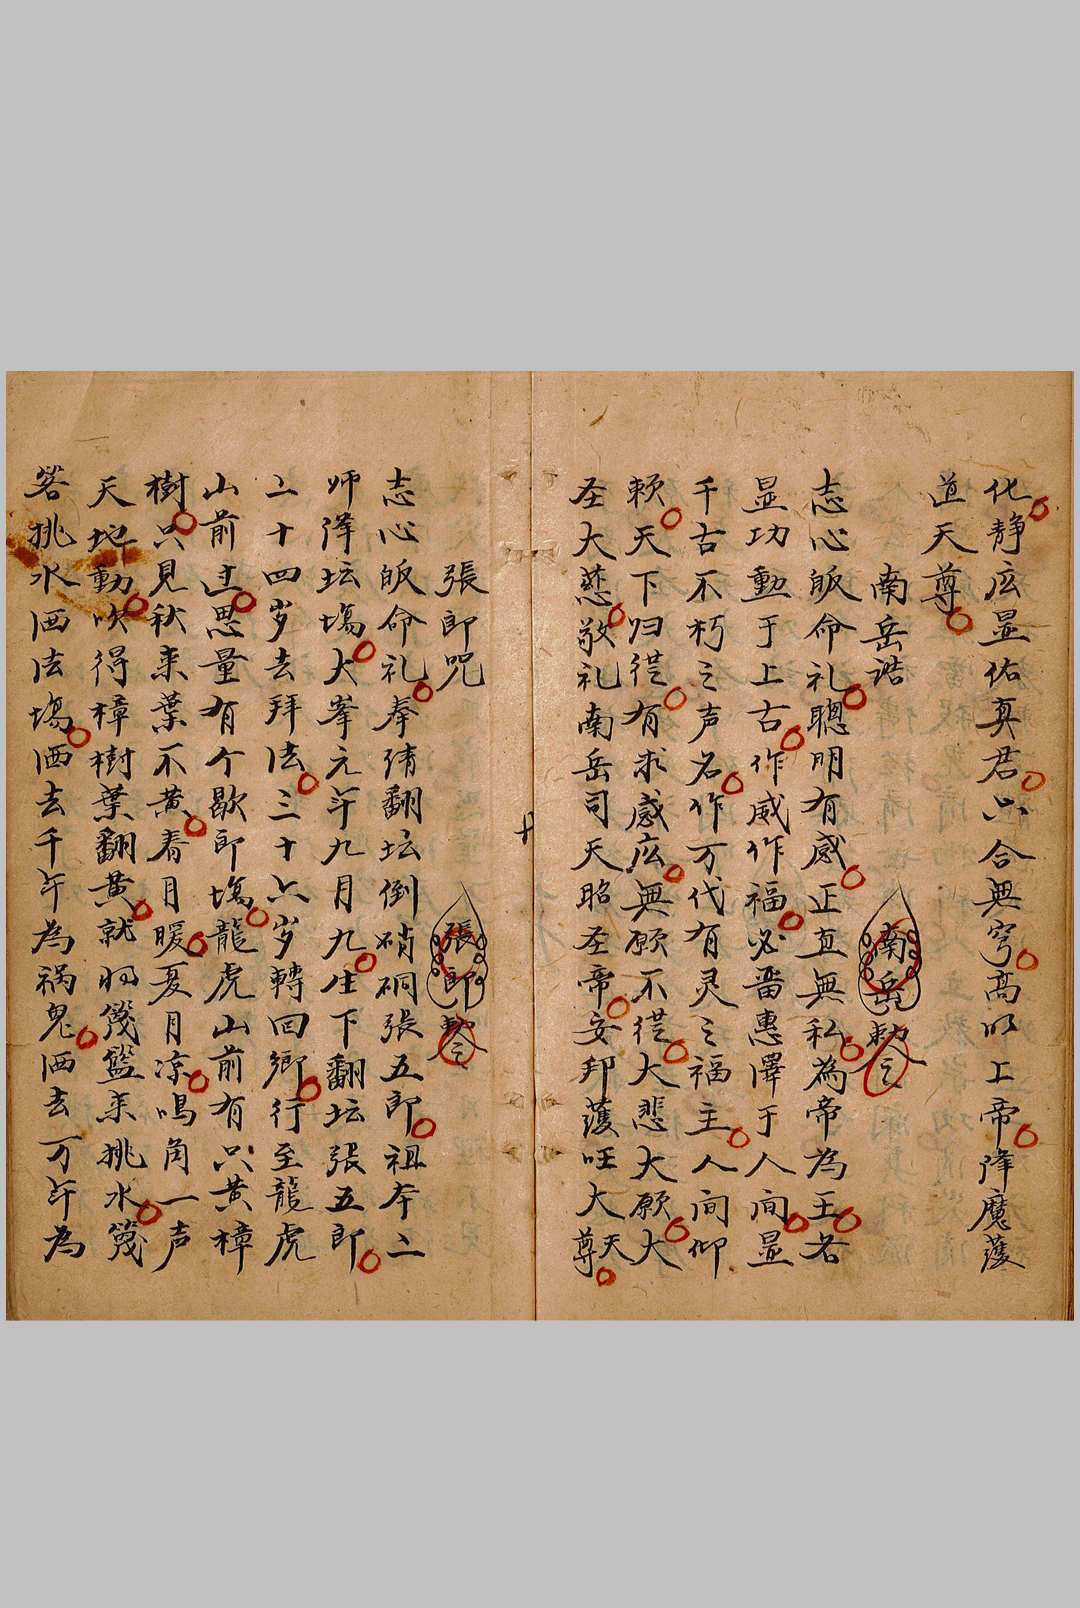 化静応显佑真君六合無穹高明上帝降魔護
道天尊
南岳誥
南岳勅令
志心皈命礼聰明有感正直無私為帝為王若
显功勳于上古作威作福必啬惠澤于人间显
千古不朽之声名作万代有灵之福主人间仰
頼天下归従有求感应無願不従大悲大願大
圣大慈敬礼南岳司天昭圣帝安邦護旺大天尊
張郎咒
張郎勅令
志心皈命礼奉請翻坛倒硝硐張五郎祖本二
师得坛塲大峯元年九月九生下翻坛張五郎
二十四岁去拜法三十六岁轉回鄉行至龍虎
山前过思量有个歇郎塲龍虎山前有只黄樟
樹只見秋来葉不黄春月暖夏月凉鳴角一声
天地動吹得樟樹葉翻黄就将篾籃来挑水篾
答挑水洒法塲洒去千年為禍鬼洒去万年為